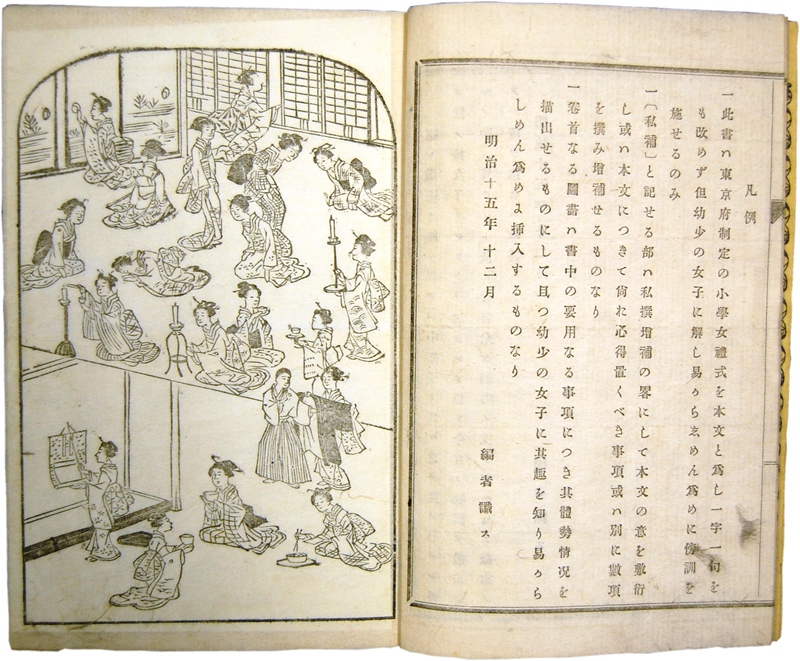 凡例
一此書ハ東京府制定の小學女禮式を本文と爲し一字一句を
も改めず但幼少の女子に解し易からしめん爲めに傍訓を
施せるのみ
一〔私補〕と記せる部ハ私撰增補の畧にして本文の意を敷衍
し或ハ本文につきて尙ほ心得置くべき事項或ハ別に數項
を撰み增補せるものなり
一卷首なる圖畫ハ書中の要用なる事項につき其體勢情况を
描出せるものにして且つ幼少の女子に其趣を知り易から
しめん爲めよ挿入するものなり
明治十五年十二月
編者識ス